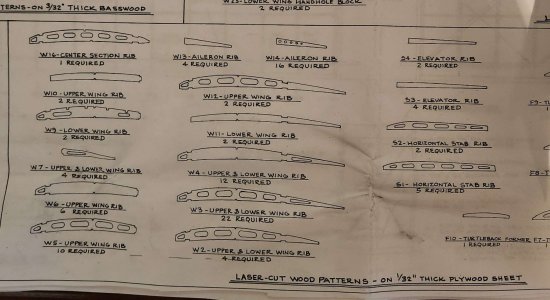 TTERNS-ON 3/32" THICK BASSWOOD
W23-LOWER WING HANDHOLE BLOCK
2 REQUIRED
W16-CENTER SECTION RIB
1 REQUIRED
W10-UPPER WING RIB
2 REQUIRED
W9-LOWER WING RIB
2 REQUIRED
W7-UPPER & LOWER WING RIB
4 REQUIRED
W6-UPPER & LOWER WING RIB
6 REQUIRED
W5-UPPER & LOWER WING RIB
10 REQUIRED
W13-AILERON RIB
4 REQUIRED
W14-AILERON RIB
16 REQUIRED
W12-UPPER WING RIB
2 REQUIRED
W11-LOWER WING RIB
2 REQUIRED
W4-UPPER & LOWER WING RIB
12 REQUIRED
W3-UPPER & LOWER WING RIB
22 REQUIRED
W2-UPPER & LOWER WING RIB
4 REQUIRED
S4-ELEVATOR RIB
2 REQUIRED
S3-ELEVATOR RIB
4 REQUIRED
S2-HORIZONTAL STAB RIB
2 REQUIRED
S1-HORIZONTAL STAB RIB
5 REQUIRED
F10-TURTLEBACK FORMER
1 REQUIRED
F9-T
F8-T
F7-T
LASER-CUT WOOD PATTERNS-ON 1/32" THICK PLYWOOD SHEET